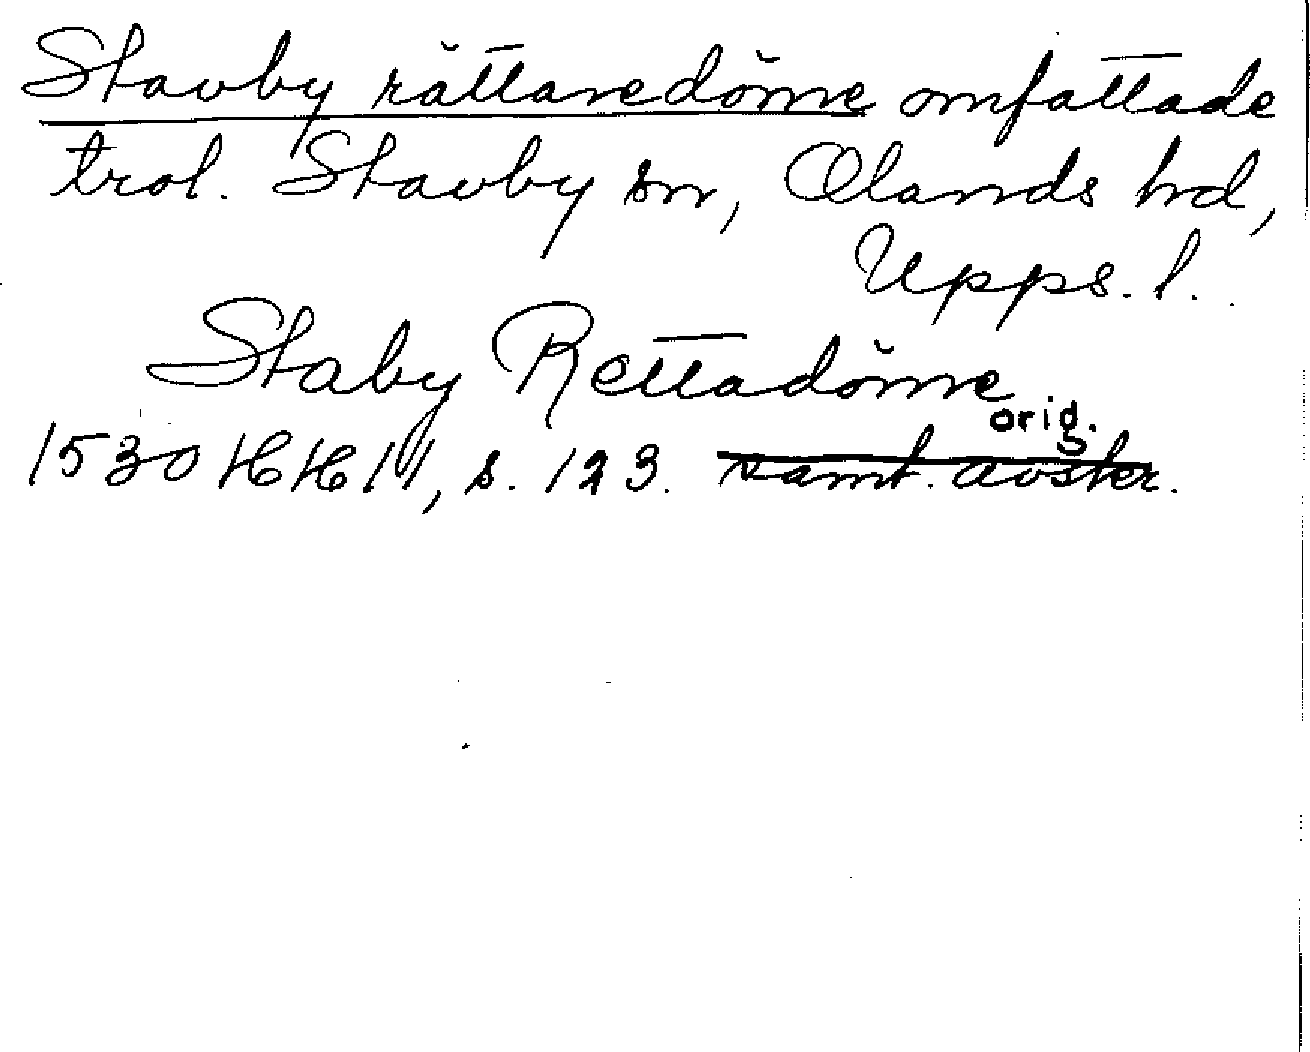 Stavby rättaredöme omfattade
trol. Stavby sn, Olands hd,
Upps. l.
Staby Rettadöme
orig.
1530 HH 11, s. 123. samt. avskr.